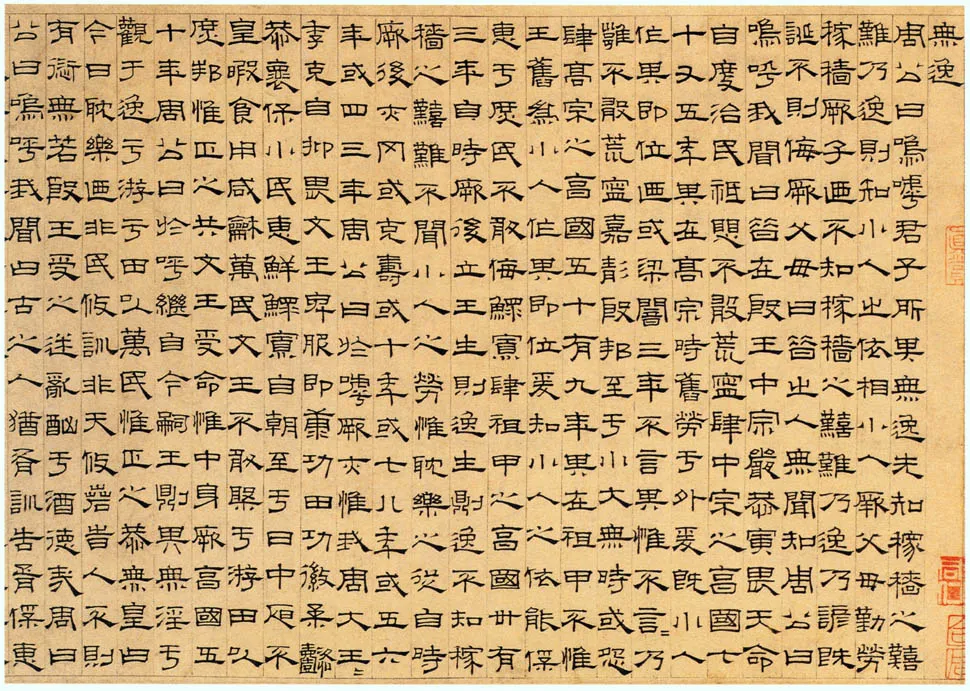 無逸
周公曰嗚嘑君子所其無逸先知稼穡之囏
難乃逸則知小人之依相小人厥父母勤勞
稼穡厥子迺不知稼穡之囏難乃逸乃諺既
誕不則侮厥父母曰昝之人無聞知周公曰
嗚呼我聞曰昝在殷王中宗嚴恭寅畏天命
自度治民祗愳不敢荒寧肆中宗之亯國七
十又五年其在高宗時舊勞于外爰既小人
作其即位迺或梁闇三年不言其惟不言=乃
雝不敢荒寧嘉靜殷邦至于小大無時或怨
肆高宗之亯國五十有九年其在祖甲不惟
王舊為小人作其即位爰知小人之依能保
惠于庶民不敢侮鰥寡肆祖甲之亯國卅有
三年自時厥後立王生則逸生則逸不知稼
穡之囏難不聞小人之勞惟耽樂之从自時
厥後亦罔或克壽或十年或七八年或五六
年或四三年周公曰於嘑厥亦惟我周大王=
季克自抑畏文王卑服即康功田功徽柔懿
恭褱保小民惠鮮鰥寡自朝至于日中昃不
皇暇食用咸龢萬民文王不敢槃于游田以
庶邦惟正之共文王受命惟中身厥亯國五
十年周公曰於呼繼自今嗣王則其無淫于
觀于逸于游于田以萬民惟正之恭無皇曰
今日耽樂迺非民攸訓非天攸若昔人不則
有愆無若殷王受之迷亂酗于酒德哉周曰
公曰嗚呼我聞曰古之人猶胥訓告胥保惠